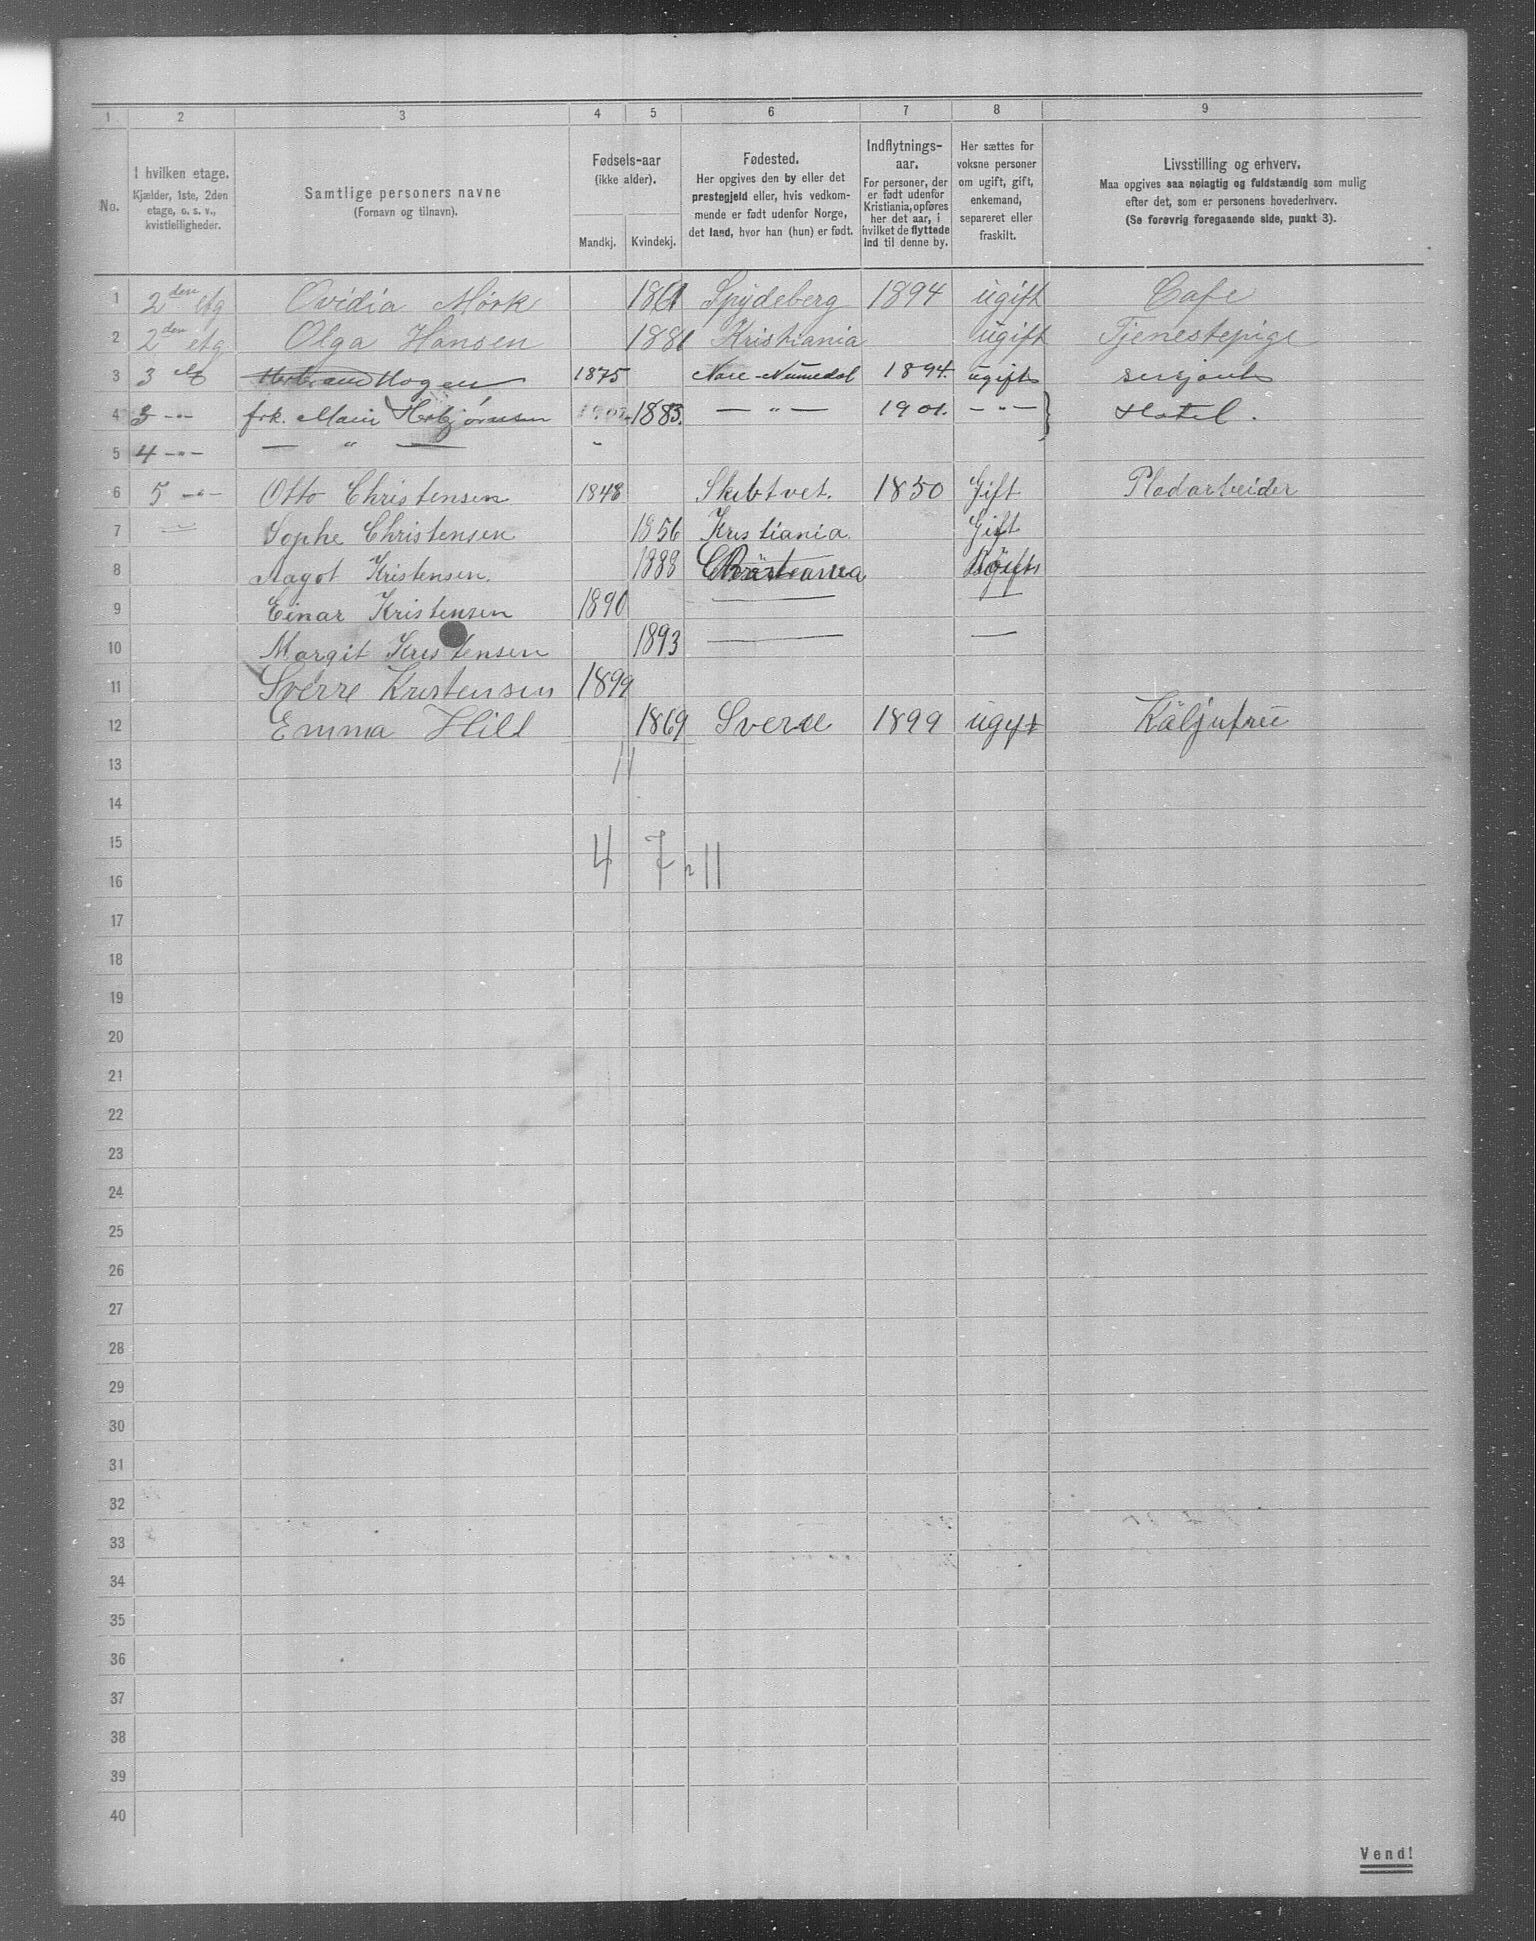 1 2 3 4 5 6 7 8 9
No.
I hvilken etage.
Kjælder, 1ste, 2den
etage, o. s. v.,
kvistleiligheder.
Samtlige personers navne
(Fornavn og tilnavn).
Fødsels-aar
(ikke alder).
Mandkj. Kvindekj.
Fødested.
Her opgives den by eller det
prestegjeld eller, hvis vedkom-
mende er født udenfor Norge,
det land, hvor han (hun) er født.
Indflytnings-
aar.
For personer, der
er født udenfor
Kristiania, opføres
her det aar, i
hvilket de flyttede
ind til denne by.
Her sættes for
voksne personer
om ugift, gift,
enkemand,
separeret eller
fraskilt.
Livsstilling og erhverv.
Maa opgives saa nøiagtig og fuldstændig som mulig
efter det, som er personens hovederhverv.
(Se forøvrig foregaaende side, punkt 3).
1 2den etg Ovidia Mörk 1861 Spydeberg 1894 ugift Cafe
2 2den etg Olga Hansen 1881 Kristiania ugift Tjenestepige
3 3 Hogen 1875 Nore-Numedal 1894. ugift serjant
4 3 -"- frk. Marie Herbjørnsen 1883. — " — 1901. - " - Hotel.
5 4 -"- — " — -
6 5 -"- Otto Christensen 1848 Skibtvet. 1850 Gift Pladarbeider
7 — Sophe Christensen 1856 Kristiania. Gift
8 Aagot Kristensen. 1888
9 Einar Kristensen 1890 — —
10 Margit Kristensen 1893 — —
11 Sverre Kristensen 1899
12 Emma Hill 1869 Sverie 1899 ugift
13 11
14
15
16 4 7 11
17
18
19
20
21
22
23
24
25
26
27
28
29
30
31
32
33
34
35
36
37
38
39
40
Vend!